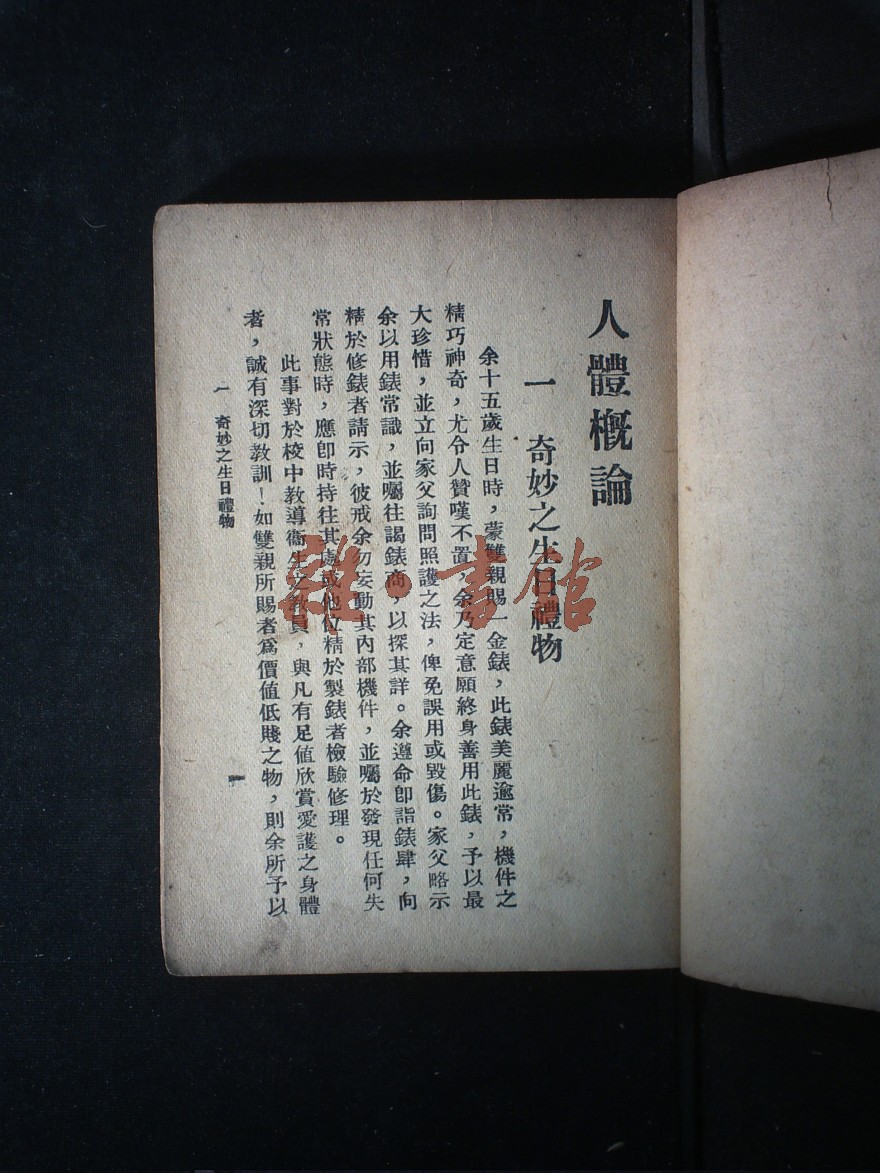 人體槪論
一　奇妙之生日禮物
余十五歲生日時，蒙雙親賜一金錶，此錶美麗逾常，機件之
精巧神奇，尤令人贊嘆不置，余乃定意願終身善用此錶，予以最
大珍惜，並立向家父詢問照護之法，俾免誤用或毀傷。家父略示
余以用錶常識，並囑往謁錶商，以探其詳。余遵命卽詣錶肆，向
精於修錶者請示，彼戒余勿妄動其內部機件，並囑於發現任何失
常狀態時，應卽時持往其處或他位精於製錶者檢驗修理。
此事對於校中教導衞生之教員，與凡有足值欣賞愛護之身體
者，誠有深切教訓！如雙親所賜者爲價值低賤之物，則余所予以
一　奇妙之生日禮物
一
雜·書館